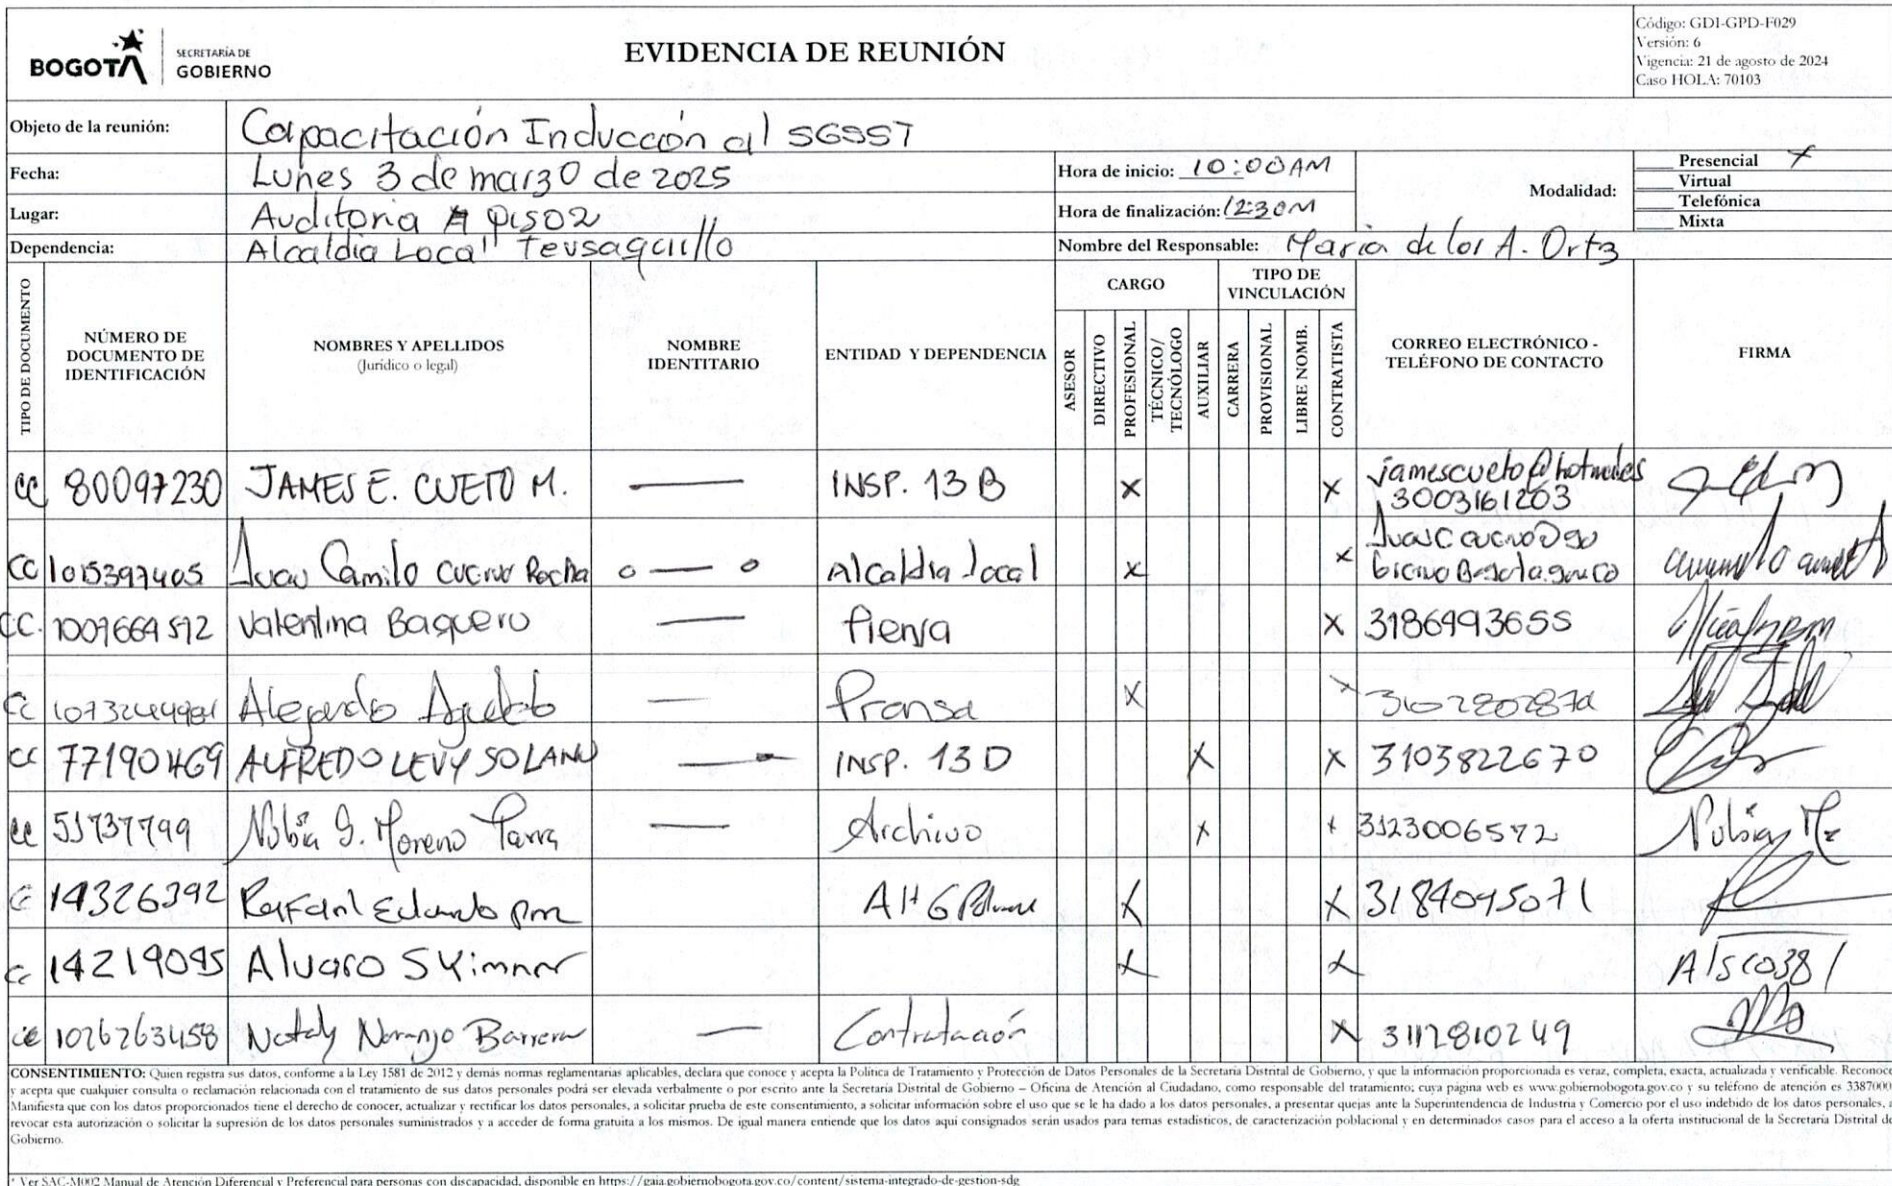 BOGOTÁ
SECRETARÍA DE
GOBIERNO
EVIDENCIA DE REUNIÓN
Código: GDI-GPD-F029
Versión: 6
Vigencia: 21 de agosto de 2024
Caso HOLA: 70103
Objeto de la reunión: Capacitación Inducción al SGSST
Fecha: Lunes 3 de marzo de 2025
Hora de inicio: 10:00 AM
Lugar: Auditoria piso 2
Hora de finalización: 12:30M
Modalidad:
Presencial X
Virtual
Telefónica
Mixta
Dependencia: Alcaldia Local Teusaquillo
Nombre del Responsable: Maria de los A. Ortz
TIPO DE DOCUMENTO
NÚMERO DE
DOCUMENTO DE
IDENTIFICACIÓN
NOMBRES Y APELLIDOS
(Jurídico o legal)
NOMBRE
IDENTITARIO
ENTIDAD Y DEPENDENCIA
CARGO
ASESOR
DIRECTIVO
PROFESIONAL
TÉCNICO/
TECNÓLOGO
AUXILIAR
TIPO DE
VINCULACIÓN
CARRERA
PROVISIONAL
LIBRE NOMB.
CONTRATISTA
CORREO ELECTRÓNICO -
TELÉFONO DE CONTACTO
FIRMA
CC 80097230 JAMES E. CUETO M. — INSP. 13 B X X jamescueto@hotmail.es
3003161203
CC 1015397405 Juan Camilo Cuervo Rocha — Alcaldia Local X X
CC. 1007669572 Valentina Baquero — Prensa X 3186993655
CC Alejandro Agudelo — Prensa X X
CC 77190469 ALFREDO LEVY SOLANO — INSP. 13 D X X 3103822670
CC 51737799 Nubia I. Moreno Parra — Archivo X X 3123006572 Nubia
CC 14326392 Rafael Eduardo X X 3184095071
CC 14219095 Alvaro X X
CC 1026263458 Nataly Naranjo Barrera — Contratación X 3112810249
CONSENTIMIENTO: Quien registra sus datos, conforme a la Ley 1581 de 2012 y demás normas reglamentarias aplicables, declara que conoce y acepta la Política de Tratamiento y Protección de Datos Personales de la Secretaría Distrital de Gobierno, y que la información proporcionada es veraz, completa, exacta, actualizada y verificable. Reconoce
y acepta que cualquier consulta o reclamación relacionada con el tratamiento de sus datos personales podrá ser elevada verbalmente o por escrito ante la Secretaría Distrital de Gobierno – Oficina de Atención al Ciudadano, como responsable del tratamiento; cuya página web es www.gobiernobogota.gov.co y su teléfono de atención es 3387000
Manifiesta que con los datos proporcionados tiene el derecho de conocer, actualizar y rectificar los datos personales, a solicitar prueba de este consentimiento, a solicitar información sobre el uso que se le ha dado a los datos personales, a presentar quejas ante la Superintendencia de Industria y Comercio por el uso indebido de los datos personales, a
revocar esta autorización o solicitar la supresión de los datos personales suministrados y a acceder de forma gratuita a los mismos. De igual manera entiende que los datos aquí consignados serán usados para temas estadísticos, de caracterización poblacional y en determinados casos para el acceso a la oferta institucional de la Secretaría Distrital de
Gobierno.
* Ver SAC-M002 Manual de Atención Diferencial y Preferencial para personas con discapacidad, disponible en https://gaia.gobiernobogota.gov.co/content/sistema-integrado-de-gestion-sdg